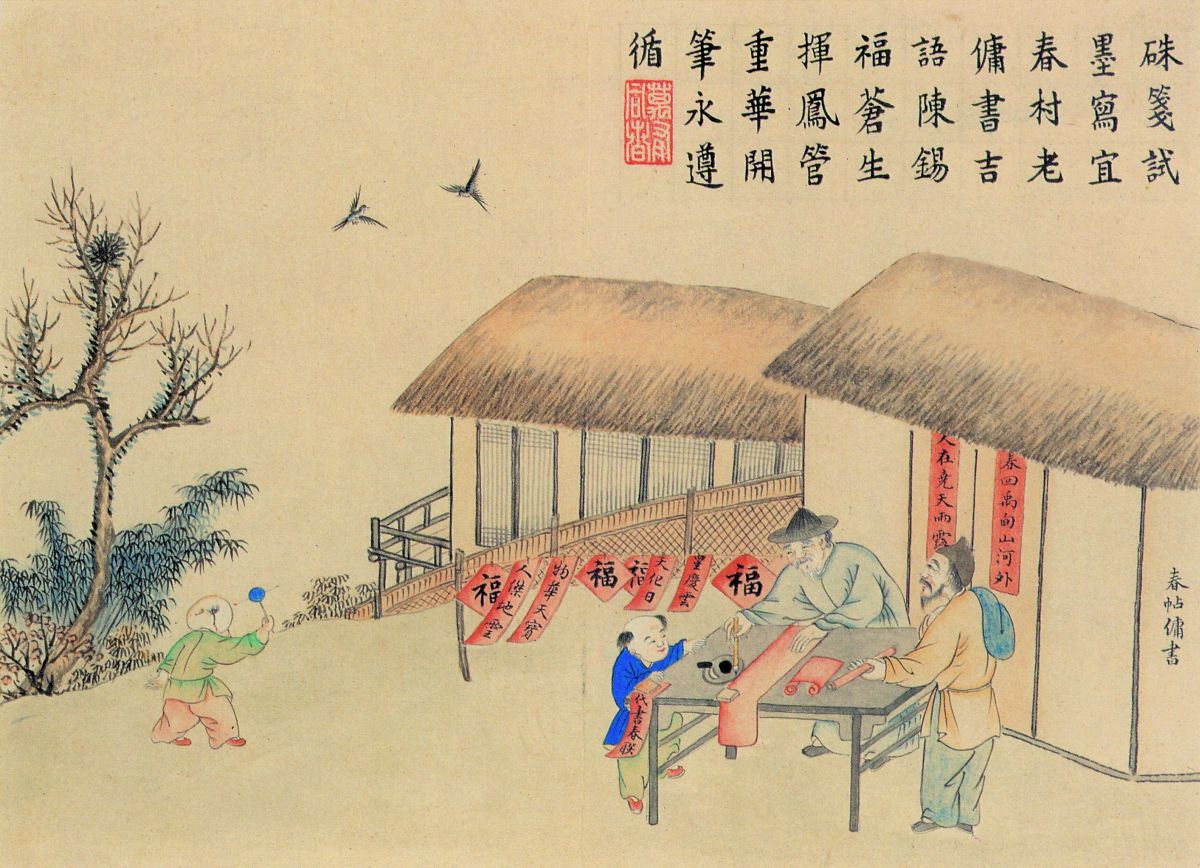 硃箋試
墨寫宜
春村老
傭書吉
語陳錫
福蒼生
揮鳳管
重華開
筆永遵
循
春帖傭書
春回禹甸山河外
人在尭天雨露
福
星慶雲
天化日
福
福
物華天寶
人傑地靈
福
代書春联